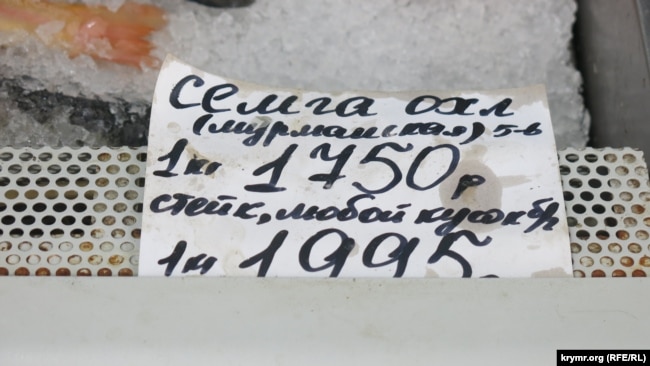 семга охл
(мурманская) 5-6
1кг 1750р
стейк, любой кусок б/г
1кг 1995
крымр.org (RFE/RL)